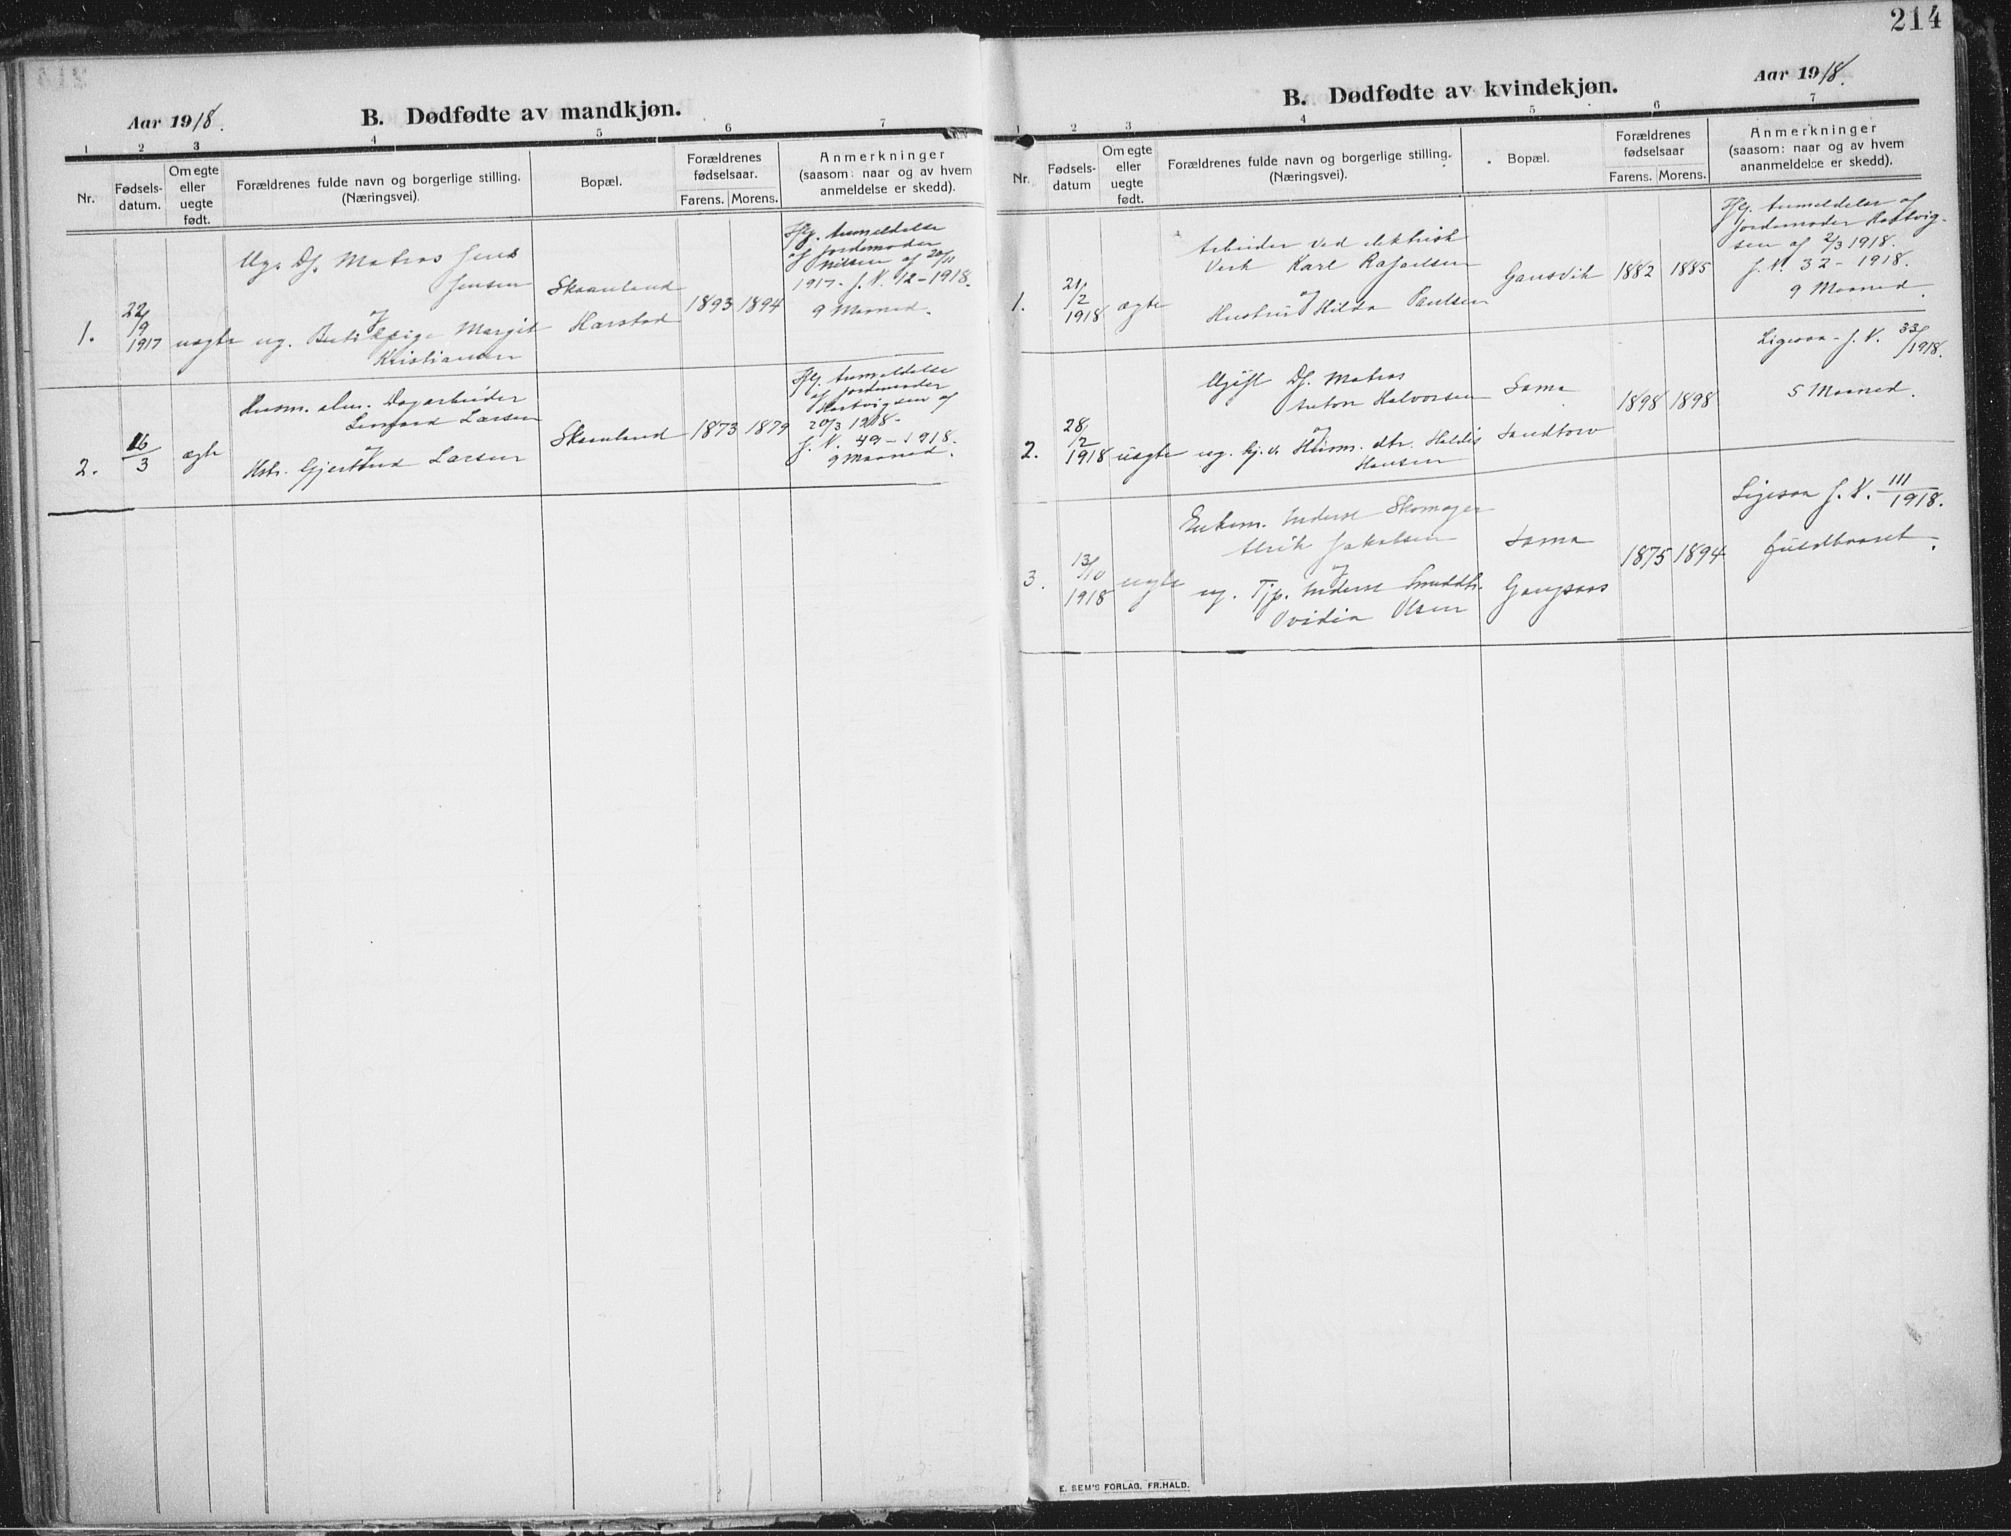 214
Aar 1918.
B. Dødfødte av mandkjøn.
1 2 3 4 5 6 7
Nr.
Fødsels-
datum.
Om egte
eller
uegte
født.
Forældrenes fulde navn og borgerlige stilling.
(Næringsvei).
Bopæl.
Forældrenes
fødselsaar.
Farens. Morens.
Anmerkninger
(saasom: naar og av hvem
anmeldelse er skedd).
1.
22/9
1917
uegte
Ug. Matros Jens
Jensen
og
ug. Butikpige Margit
Kristiansen
Skaanland
Harstad
1893 1894
Iflg. Anmeldelse
af Jordemoder
Nilsen af 20/11
1917. J. N. 12-1918.
9 Maaned.
2.
16/3
ægte
Husm. alm. Dagarbeider
Larsen
og
Hstr. Larsen
Skaanland
1873 1879
Iflg. Anmeldelse
af Jordemoder
Hartvigsen af
20/3 1918.
J. N. 49-1918.
9 Maaned.
Aar 1918.
B. Dødfødte av kvindekjøn.
1 2 3 4 5 6 7
Nr.
Fødsels-
datum
Om egte
eller
uegte
født.
Forældrenes fulde navn og borgerlige stilling.
(Næringsvei).
Bopæl.
Forældrenes
fødselsaar
Farens. Morens.
Anmerkninger
(saasom: naar og av hvem
ananmeldelse er skedd).
1.
21/2
1918
ægte
Arbeider ved elektrisk
Verk Karl Rafaelsen
og
Hustru Hilda Paulsen
Gansvik
1882 1885
Iflg. Anmeldelse af
Jordemoder Hartvig-
sen af 2/3 1918.
J. N. 32-1918.
9 Maaned.
2.
28/2
1918
uægte
Ugift Matros
Anton Halvorsen
og
ug. Husm. dtr. Haldis
Hansen
Sama
Sandtorv
1898 1898
Ligesaa - J. N. 33/1918.
5 Maaned.
3.
13/10
1918
uegte
Enkem. Inderst Skomager
Ulrik Jakobsen
og
ug. Tjp. Inderst
Ovidia Olsen
Sama
Gangsaas
1875 1894
Ligesaa J. N. 111/1918.
fuldbaaret.
E. SEM'S FORLAG, FR.HALD.